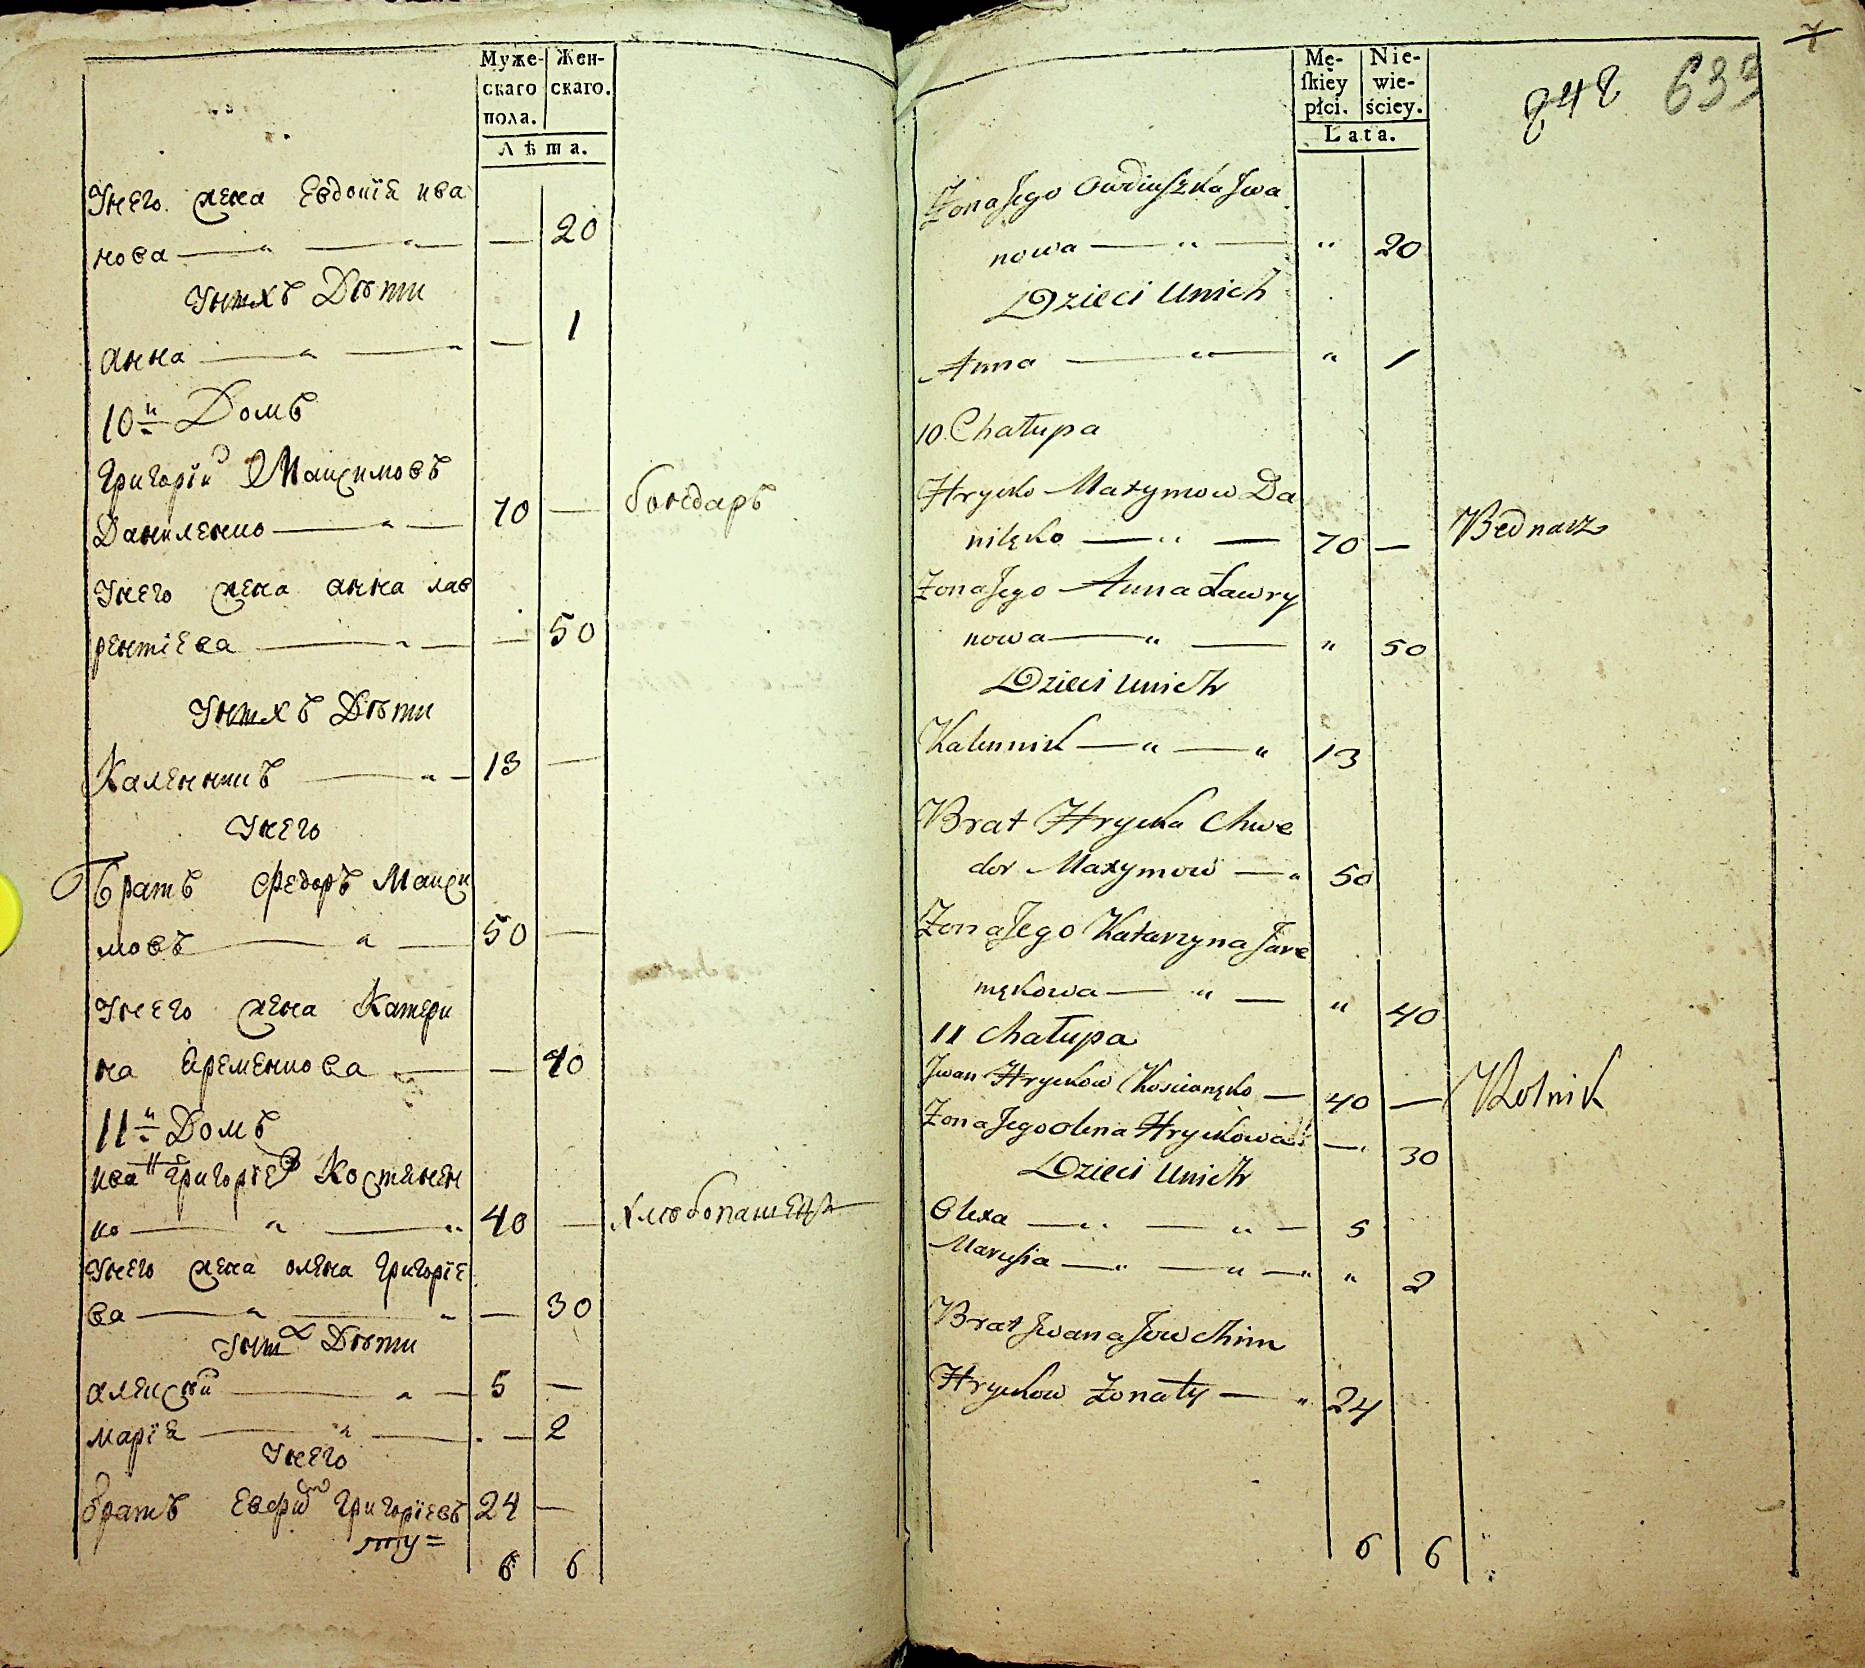 Муже- Жен-
скаго скаго.
пола.
Лѣта.
Унего жена Евдокїя ива
нова — " — " — — 20
Унихъ Дѣти
анна — " — " — 1
10й Домъ
Григорїй Максимовъ
Даниленко — " — 70 — бондаръ
Унего жена анна лав
рентїева — " — — 50
Унихъ Дѣти
Каленникъ — " — 13 —
Унего
братъ Федоръ Макси
мовъ — " — 50 —
Унего жена Катери
на Яременкова — — 40
11й Домъ
иванъ Григорїевъ Костянен
ко — " — " 40 — хлюбопашецъ
Унего жена олена Григорїе
ва — " — " — 30
Уних Дѣти
алексѣй — " — 5 —
марїя — " — . — 2
Унего
братъ Евфим Григорїевъ 24 —
ту=
6 6
7
Mę- Nie-
ſkiey wie-
płci. ściey.
Lata.
848 633
Żona Jego Owdiuszka Iwa
nowa — " — " 20
Dzieci Unich
Anna — " — " 1
10 Chałupa
Hrycko Maxymow Da
nilęko — " — 70 — Bednarz
Żona Jego Anna Ławry
nowa — " — " 50
Dzieci Unich
Kalennik — " — " 13
Brat Hrycka Chwe
dor Maxymow — " 50
Żona Jego Katarzyna Jare
mękowa — " — " 40
11 Chałupa
Iwan Hryckow Kościanęko — 40 — Rolnik
Żona Jego olena Hryckowa — " 30
Dzieci Unich
Olexa — " — " — 5
Marysia — " — " — " " 2
Brat Iwana Jowchim
Hryckow Żonaty — " 24
6 6